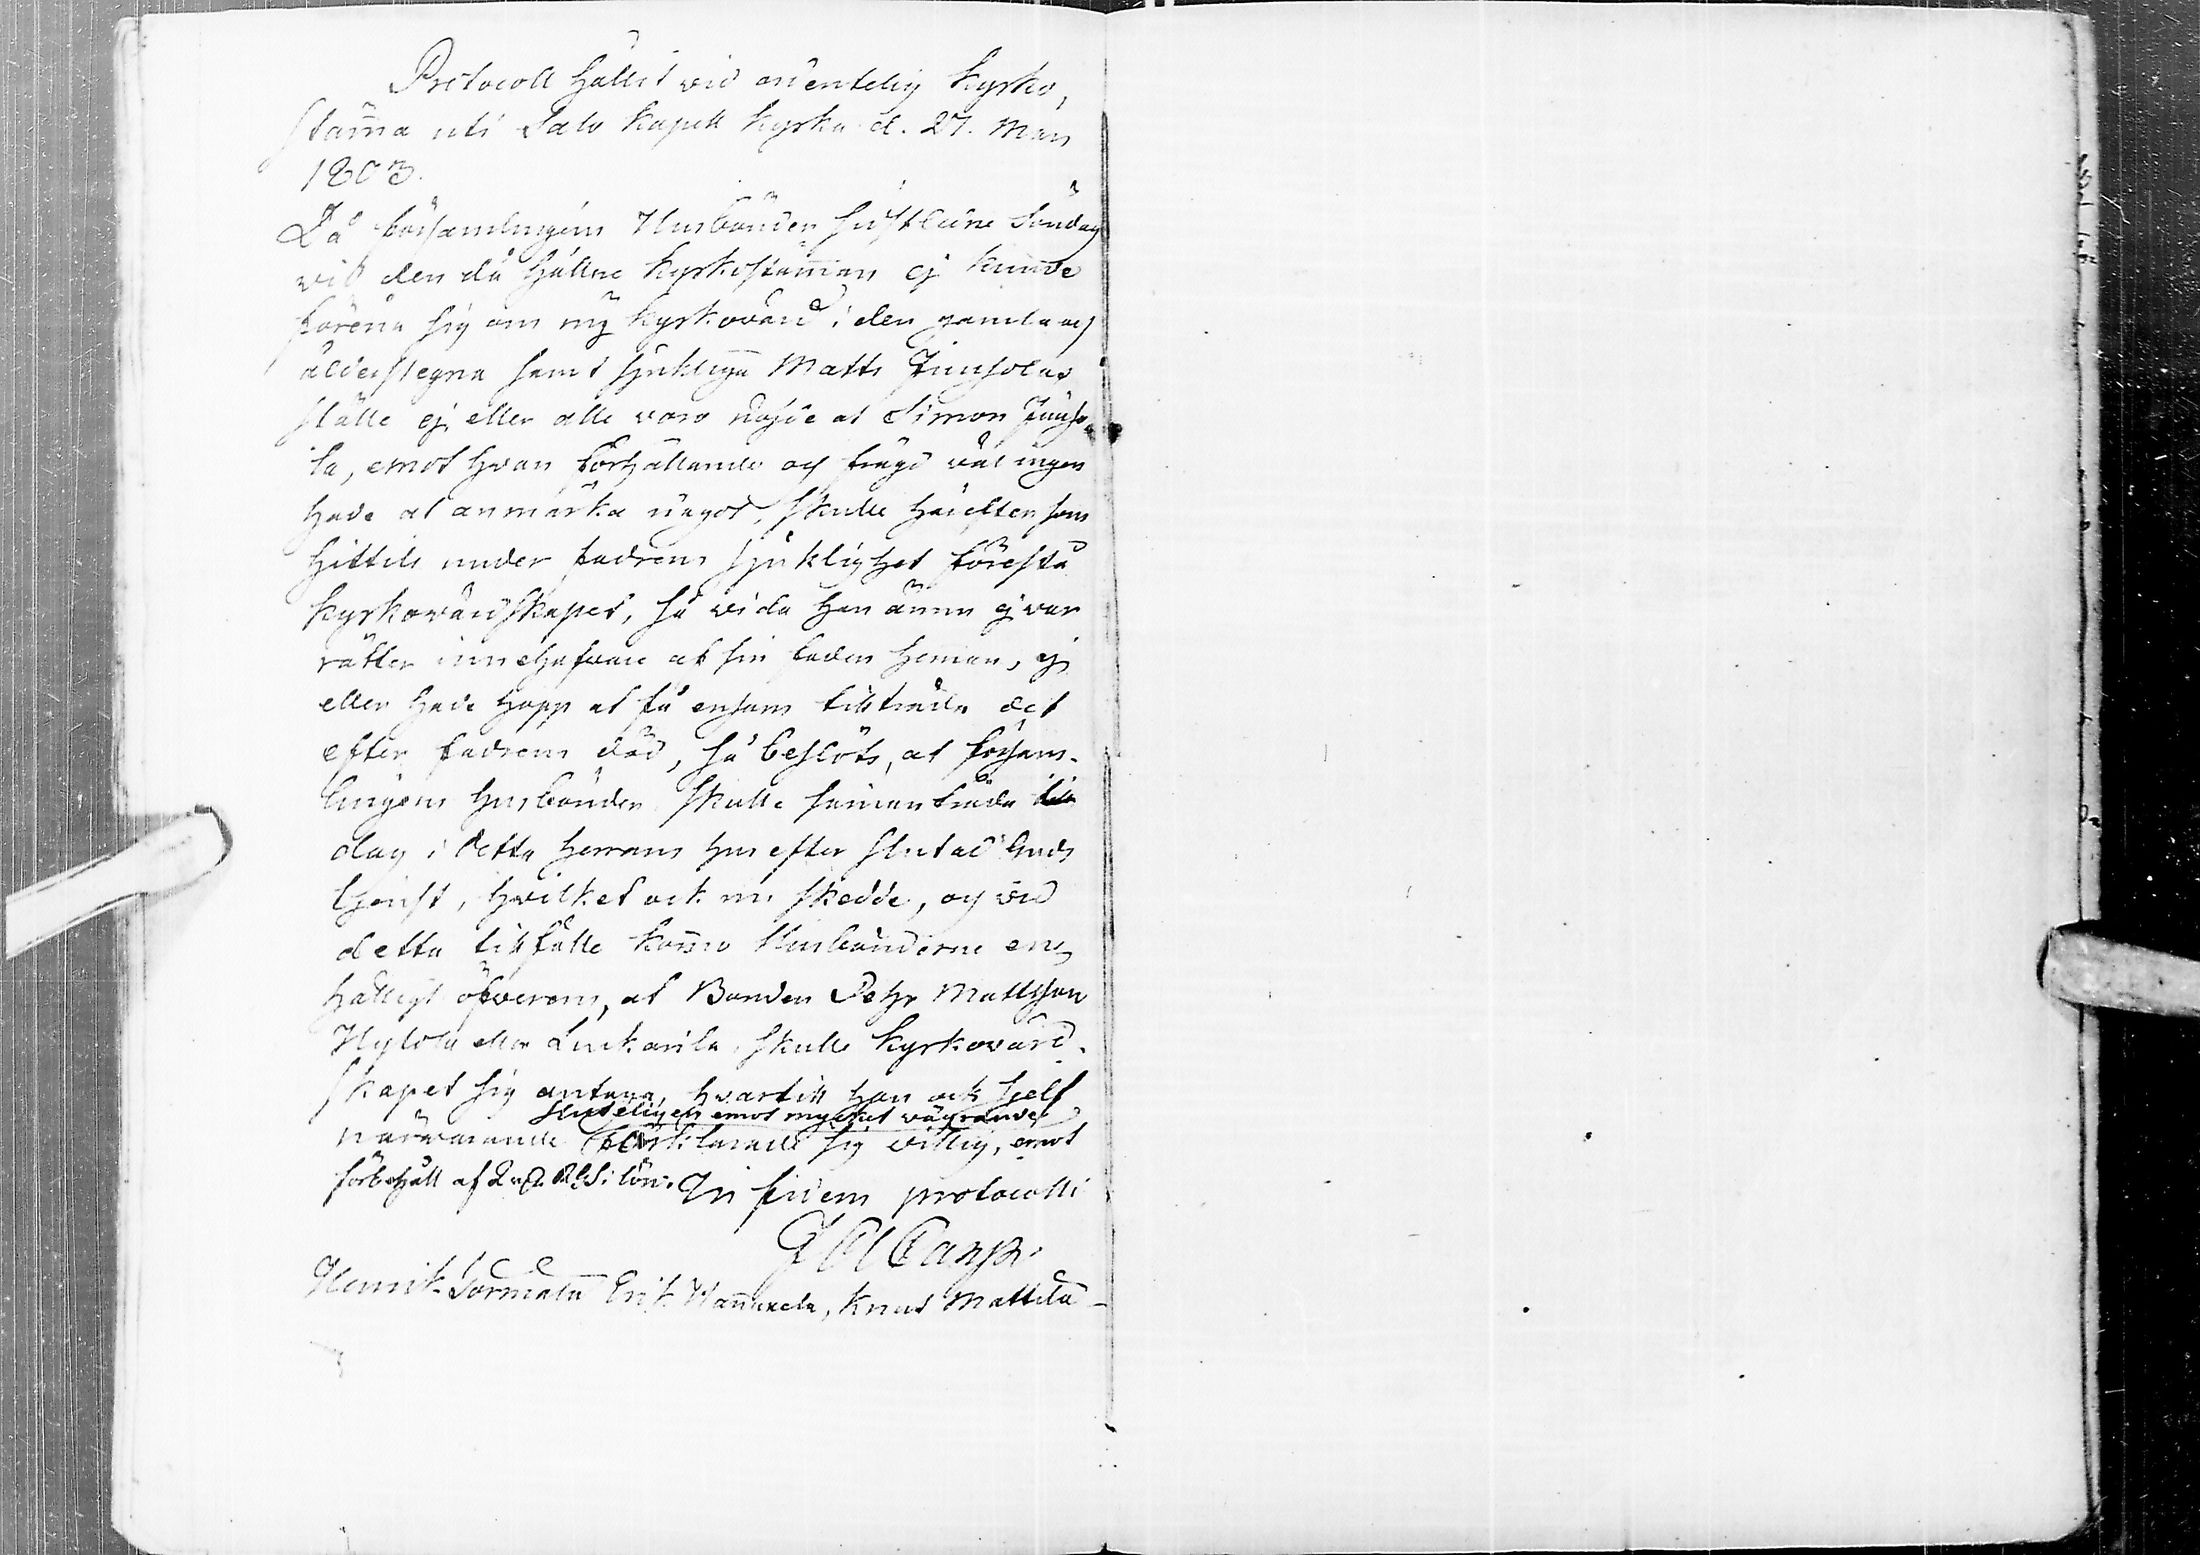 Protocoll hållit vid ordentelig kyrko,
stäma uti Salo kapell kyrka d. 27. Mars
1803.
Då församlingens Husbönder sistledne Söndag
vid den då hållne kyrkostämman ej kunde
förena sig om ny kyrkovärd i den gamla och
ålderstegna samt sjukliga Matts
ställe ej eller alle voro nöjde at Simon
la, emot hvars förhållande och frägd väl ingen
hade at anmärka något, skulle härefter som
hittils under fadrens sjuklighet förestå
kyrkovärdskapet, så vida han ännu ej var
rätter innehafvare af sin faders heman, ej
eller hade hopp at få ensam tillträda det
efter fadrens död, så beslöts, at försam-
lingens husbönder skulle sammanträda
dag i detta Herrans hus efter slutad Guds
tjenst, hvilket ock nu skedde, och vid
detta tillfälle komo Husbönderne en,
hälligt öfverens, at Bonden Pehr Mattsson
Hylola eller skulle kyrkovärd-
skapet sig antaga, hvartill han ock sjelf
sluteligen emot myckit vägrande
närvarande förklarade sig villig, emot
förbehåll af 2 lön. In fidem protocolli

Henrik Sormala Erik Knut Mattila